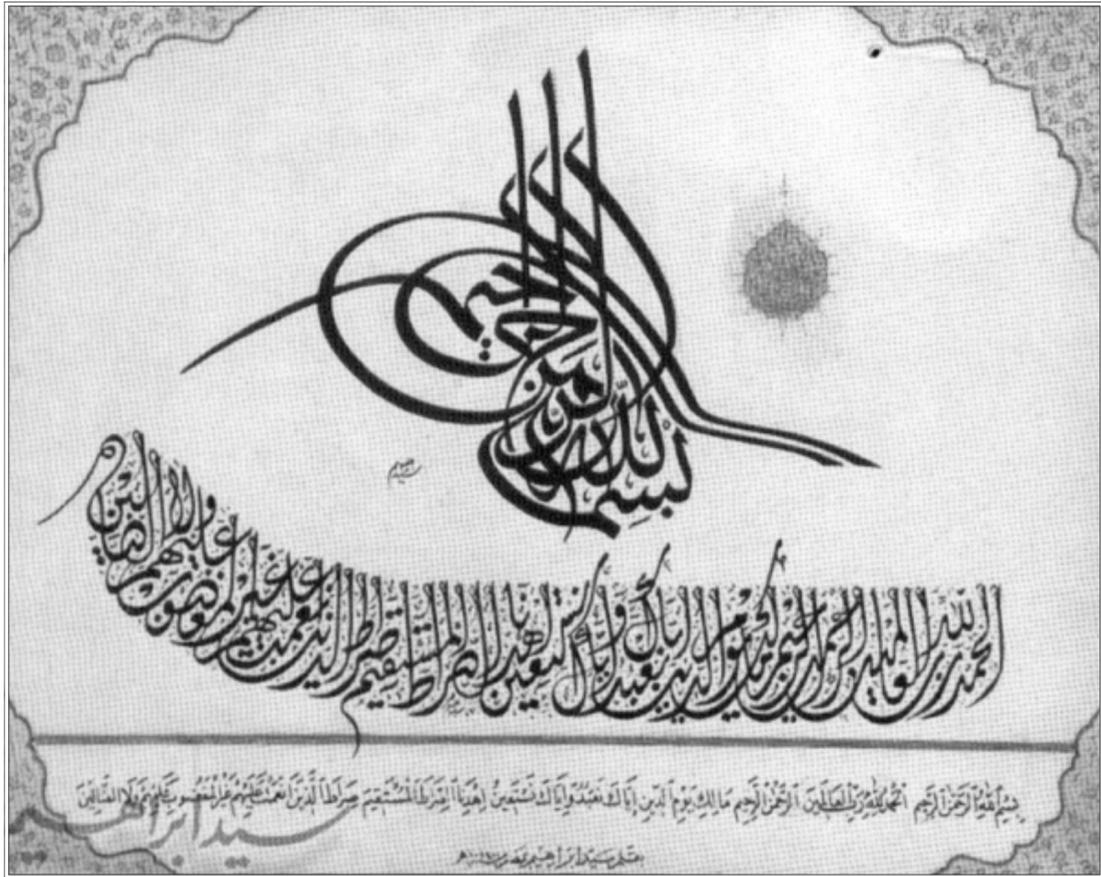 بسم الله الرحمن الرحيم
الحمد لله رب العالمين الرحمن الرحيم مالك يوم الدين إياك نعبد وإياك نستعين اهدنا الصراط المستقيم صراط الذين أنعمت عليهم غير المغضوب عليهم ولا الضالين
بِسْمِ اللهِ الرَّحْمٰنِ الرَّحِيمِ اَلْحَمْدُ لِلّٰهِ رَبِّ الْعَالَمِينَ اَلرَّحْمٰنِ الرَّحِيمِ مَالِكِ يَوْمِ الدِّينِ إِيَّاكَ نَعْبُدُ وَإِيَّاكَ نَسْتَعِينُ اِهْدِنَا الصِّرَاطَ الْمُسْتَقِيمَ صِرَاطَ الَّذِينَ أَنْعَمْتَ عَلَيْهِمْ غَيْرِ الْمَغْضُوبِ عَلَيْهِمْ وَلَا الضَّالِّينَ
سيد ابراهيم
سيد ابراهيم